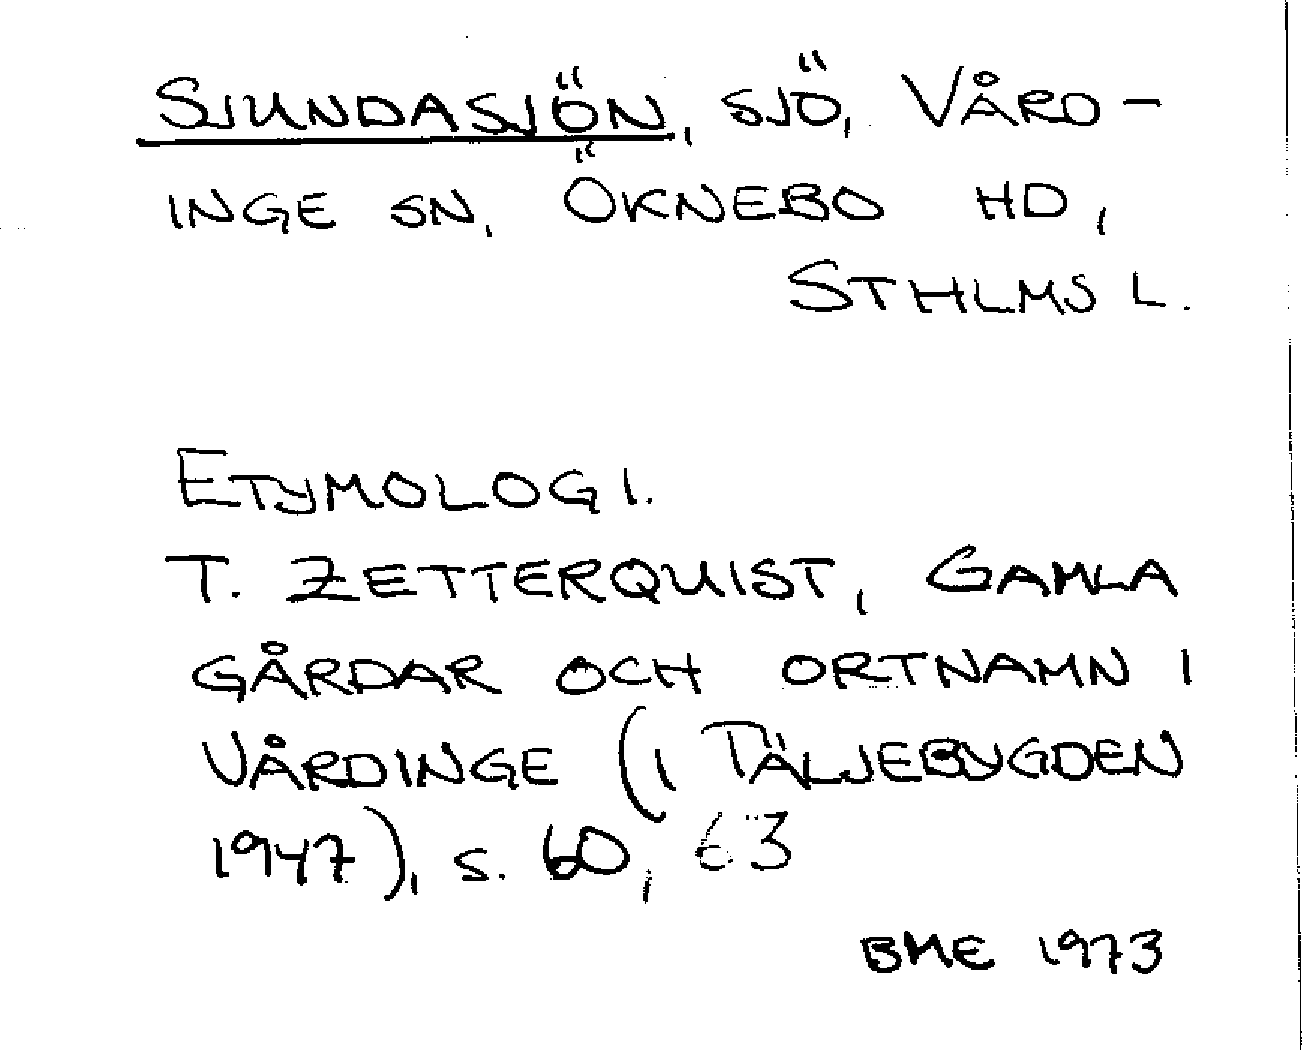 SJUNDASJÖN, SJÖ, VÅRD-
INGE SN, ÖKNEBO HD,
STHLMS L.
ETYMOLOGI.
T. ZETTERQUIST, GAMLA
GÅRDAR OCH ORTNAMN I
VÅRDINGE (I TÄLJEBYGDEN
1947), S. 60, 63
BME 1973